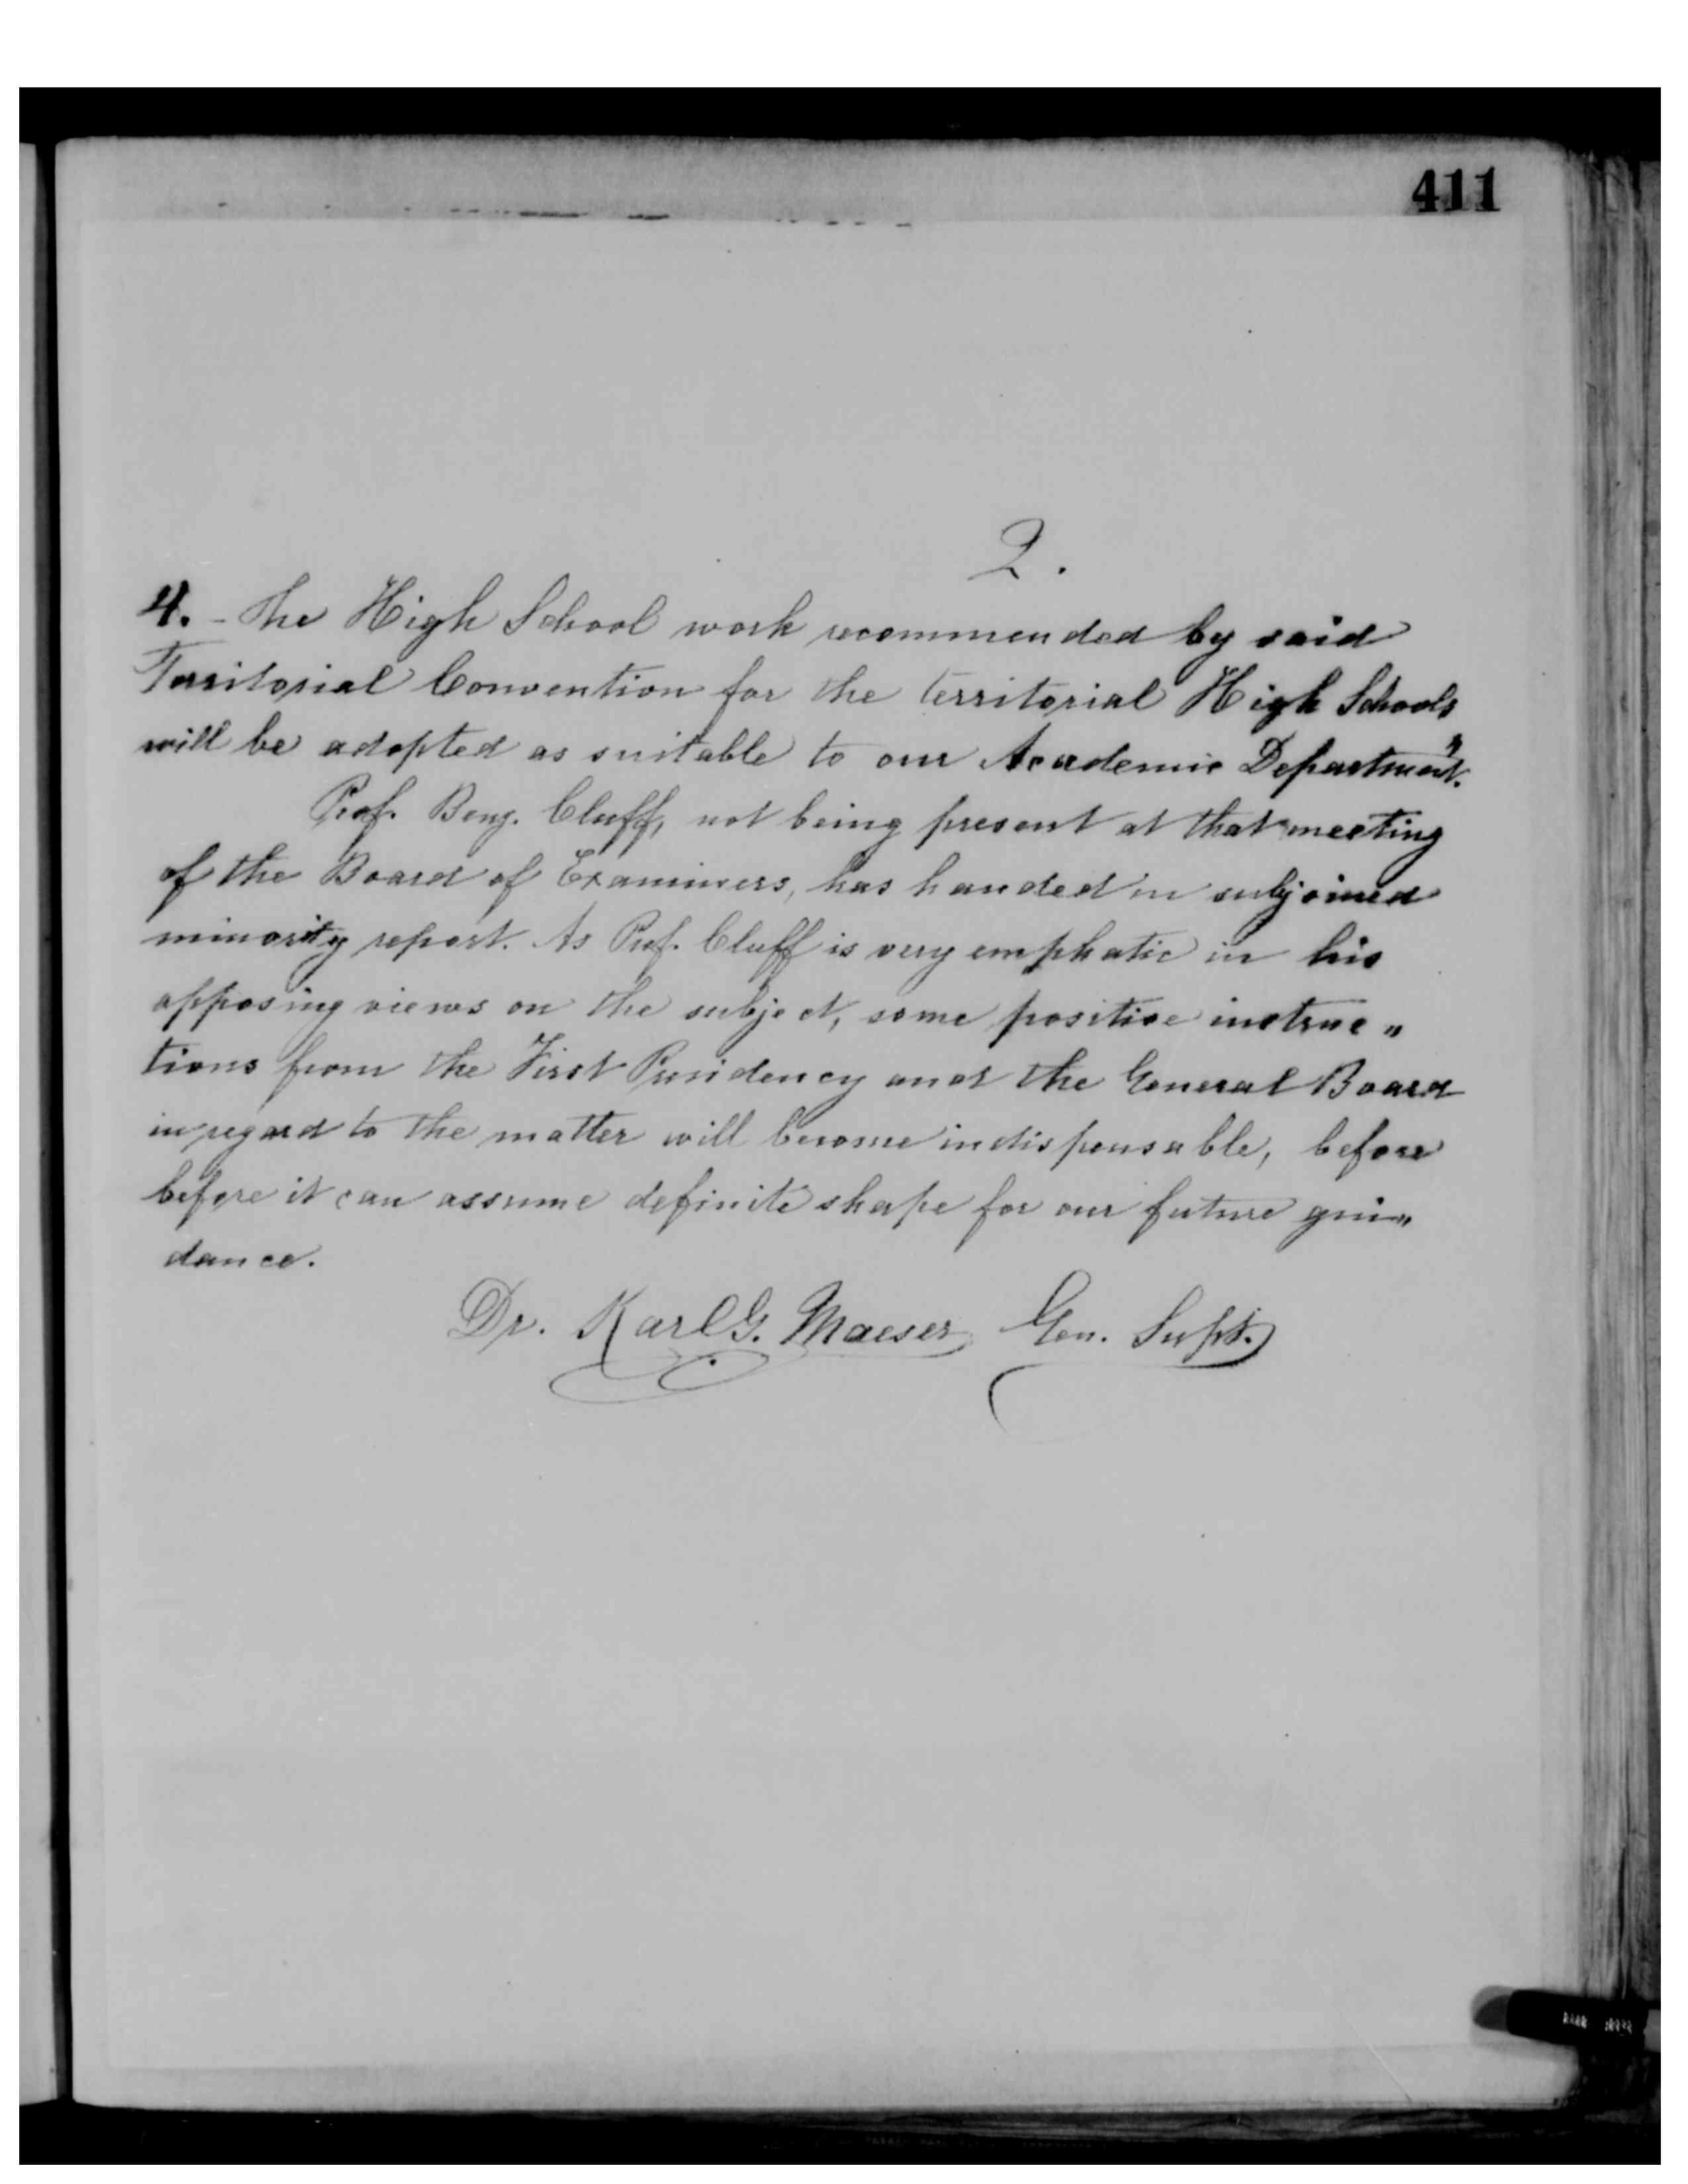 411
2.
4. - The High School work recommended by said
Territorial Convention for the territorial High Schools
will be adopted as suitable to our Academic Department."
Prof. Benj. Cluff, not being present at that meeting
of the Board of Examiners, has handed in subjoined
minority report. As Prof. Cluff is very emphatic in his
opposing views on the subject, some positive instruc "
tions from the First Presidency and the General Board
in regard to the matter will become indispensable, before
before it can assume definite shape for our future gui "
dance.
Dr. Karl G. Maeser, Gen. Supt.